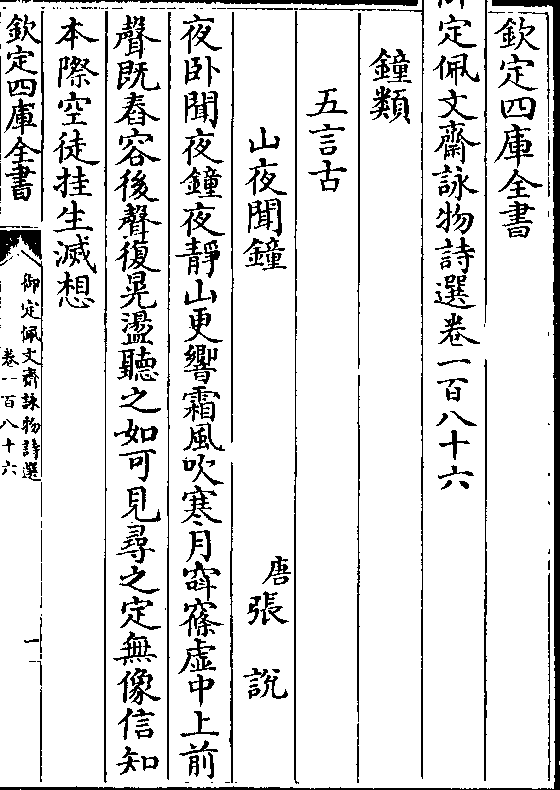 欽定四庫全書
御定佩文齋詠物詩選卷一百八十六
鐘類
五言古
山夜聞鐘 唐張說
夜卧聞夜鐘夜靜山更響霜風吹寒月窅篠虛中上前
聲既舂容後聲復晃盪聽之如可見尋之定無像信知
本際空徒挂生滅想
欽定四庫全書
御定佩文齋詠物詩選
卷一百八十六
一